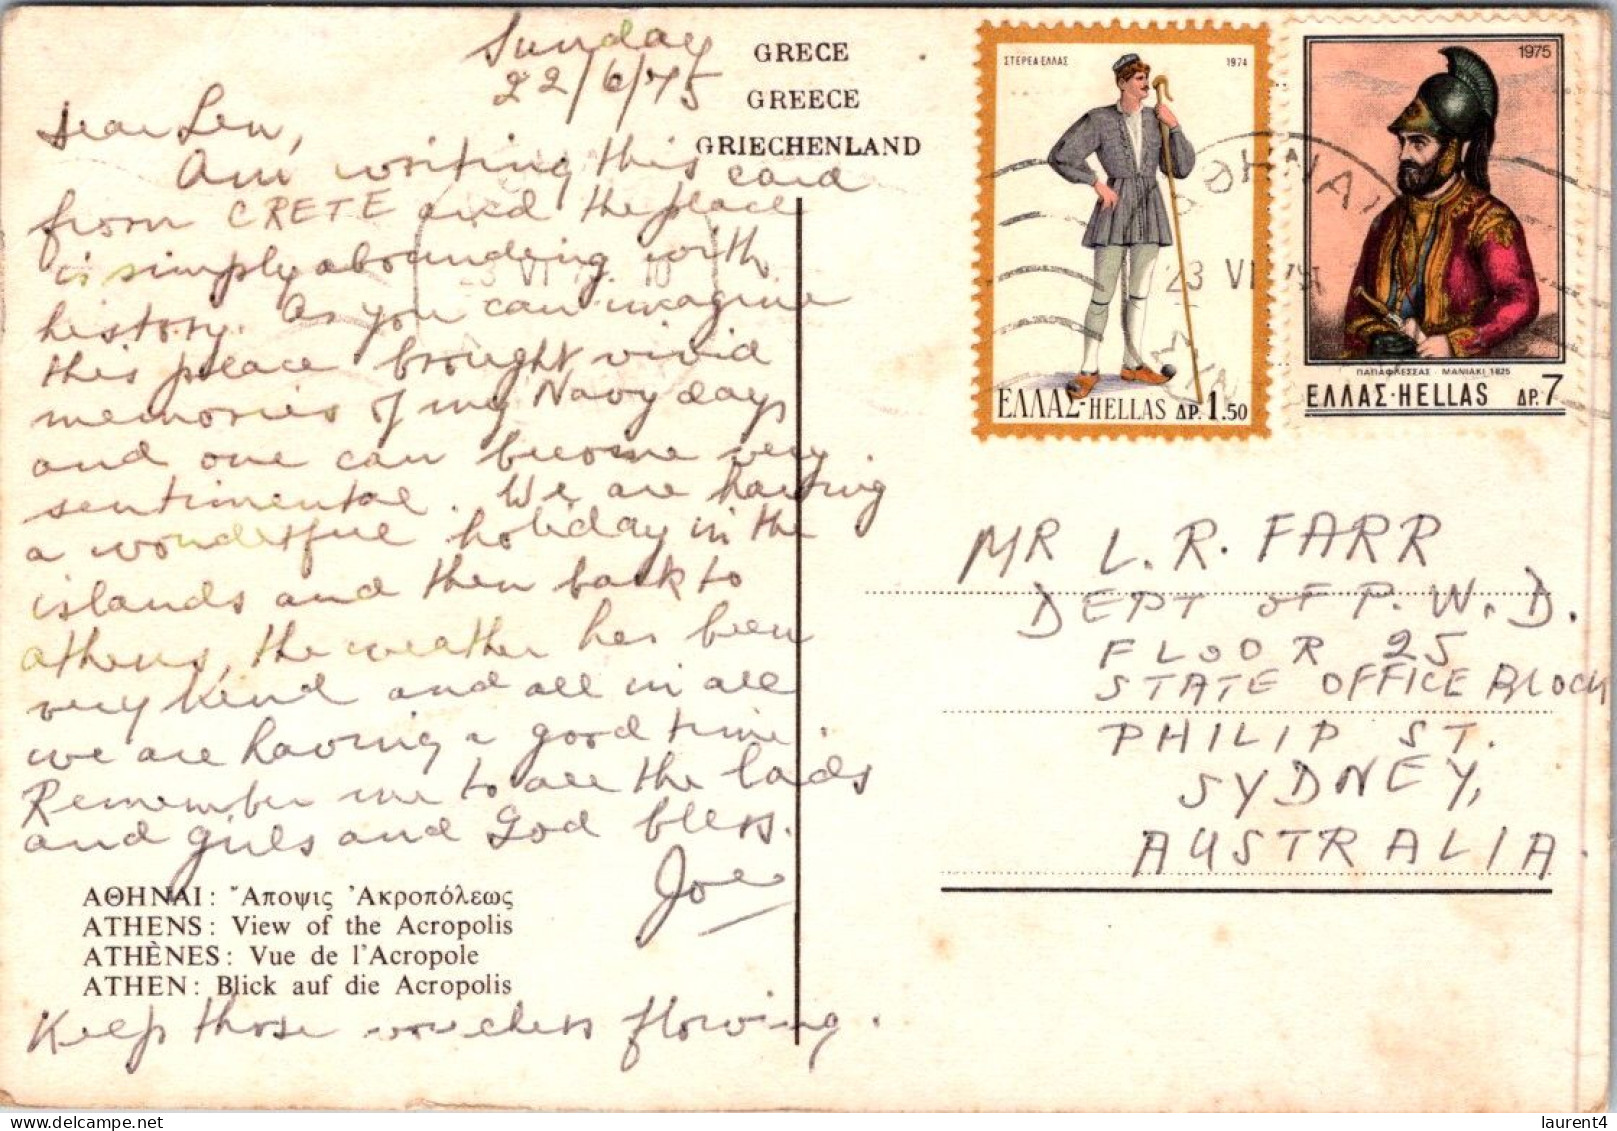 Sunday
22/6/75
Dear Len,
Am writing this card
from CRETE and the place
is simply abounding with
history. As you can imagine
this place brought vivid
memories of my Navy days
and one can become very
sentimental. We are having
a wonderful holiday in the
islands and then back to
athens, the weather has been
very kind and all in all
we are having a good time.
Remember me to all the lads
and girls and God bless.
Joe
ΑΘΗΝΑΙ: Ἄποψις Ἀκροπόλεως
ATHENS: View of the Acropolis
ATHÈNES: Vue de l'Acropole
ATHEN: Blick auf die Acropolis
Keep those vouchers flowing.
GRECE
GREECE
GRIECHENLAND
ΣΤΕΡΕΑ ΕΛΛΑΣ 1974
ΕΛΛΑΣ-HELLAS ΔΡ. 1.50
1975
ΠΑΠΑΦΛΕΣΣΑΣ - ΜΑΝΙΑΚΙ 1825
ΕΛΛΑΣ-HELLAS ΔΡ. 7
ΑΘΗΝΑΙ
23 VI
MR L. R. FARR
DEPT OF P. W. D.
FLOOR 25
STATE OFFICE BLOCK
PHILIP ST.
SYDNEY,
AUSTRALIA.
laurent4